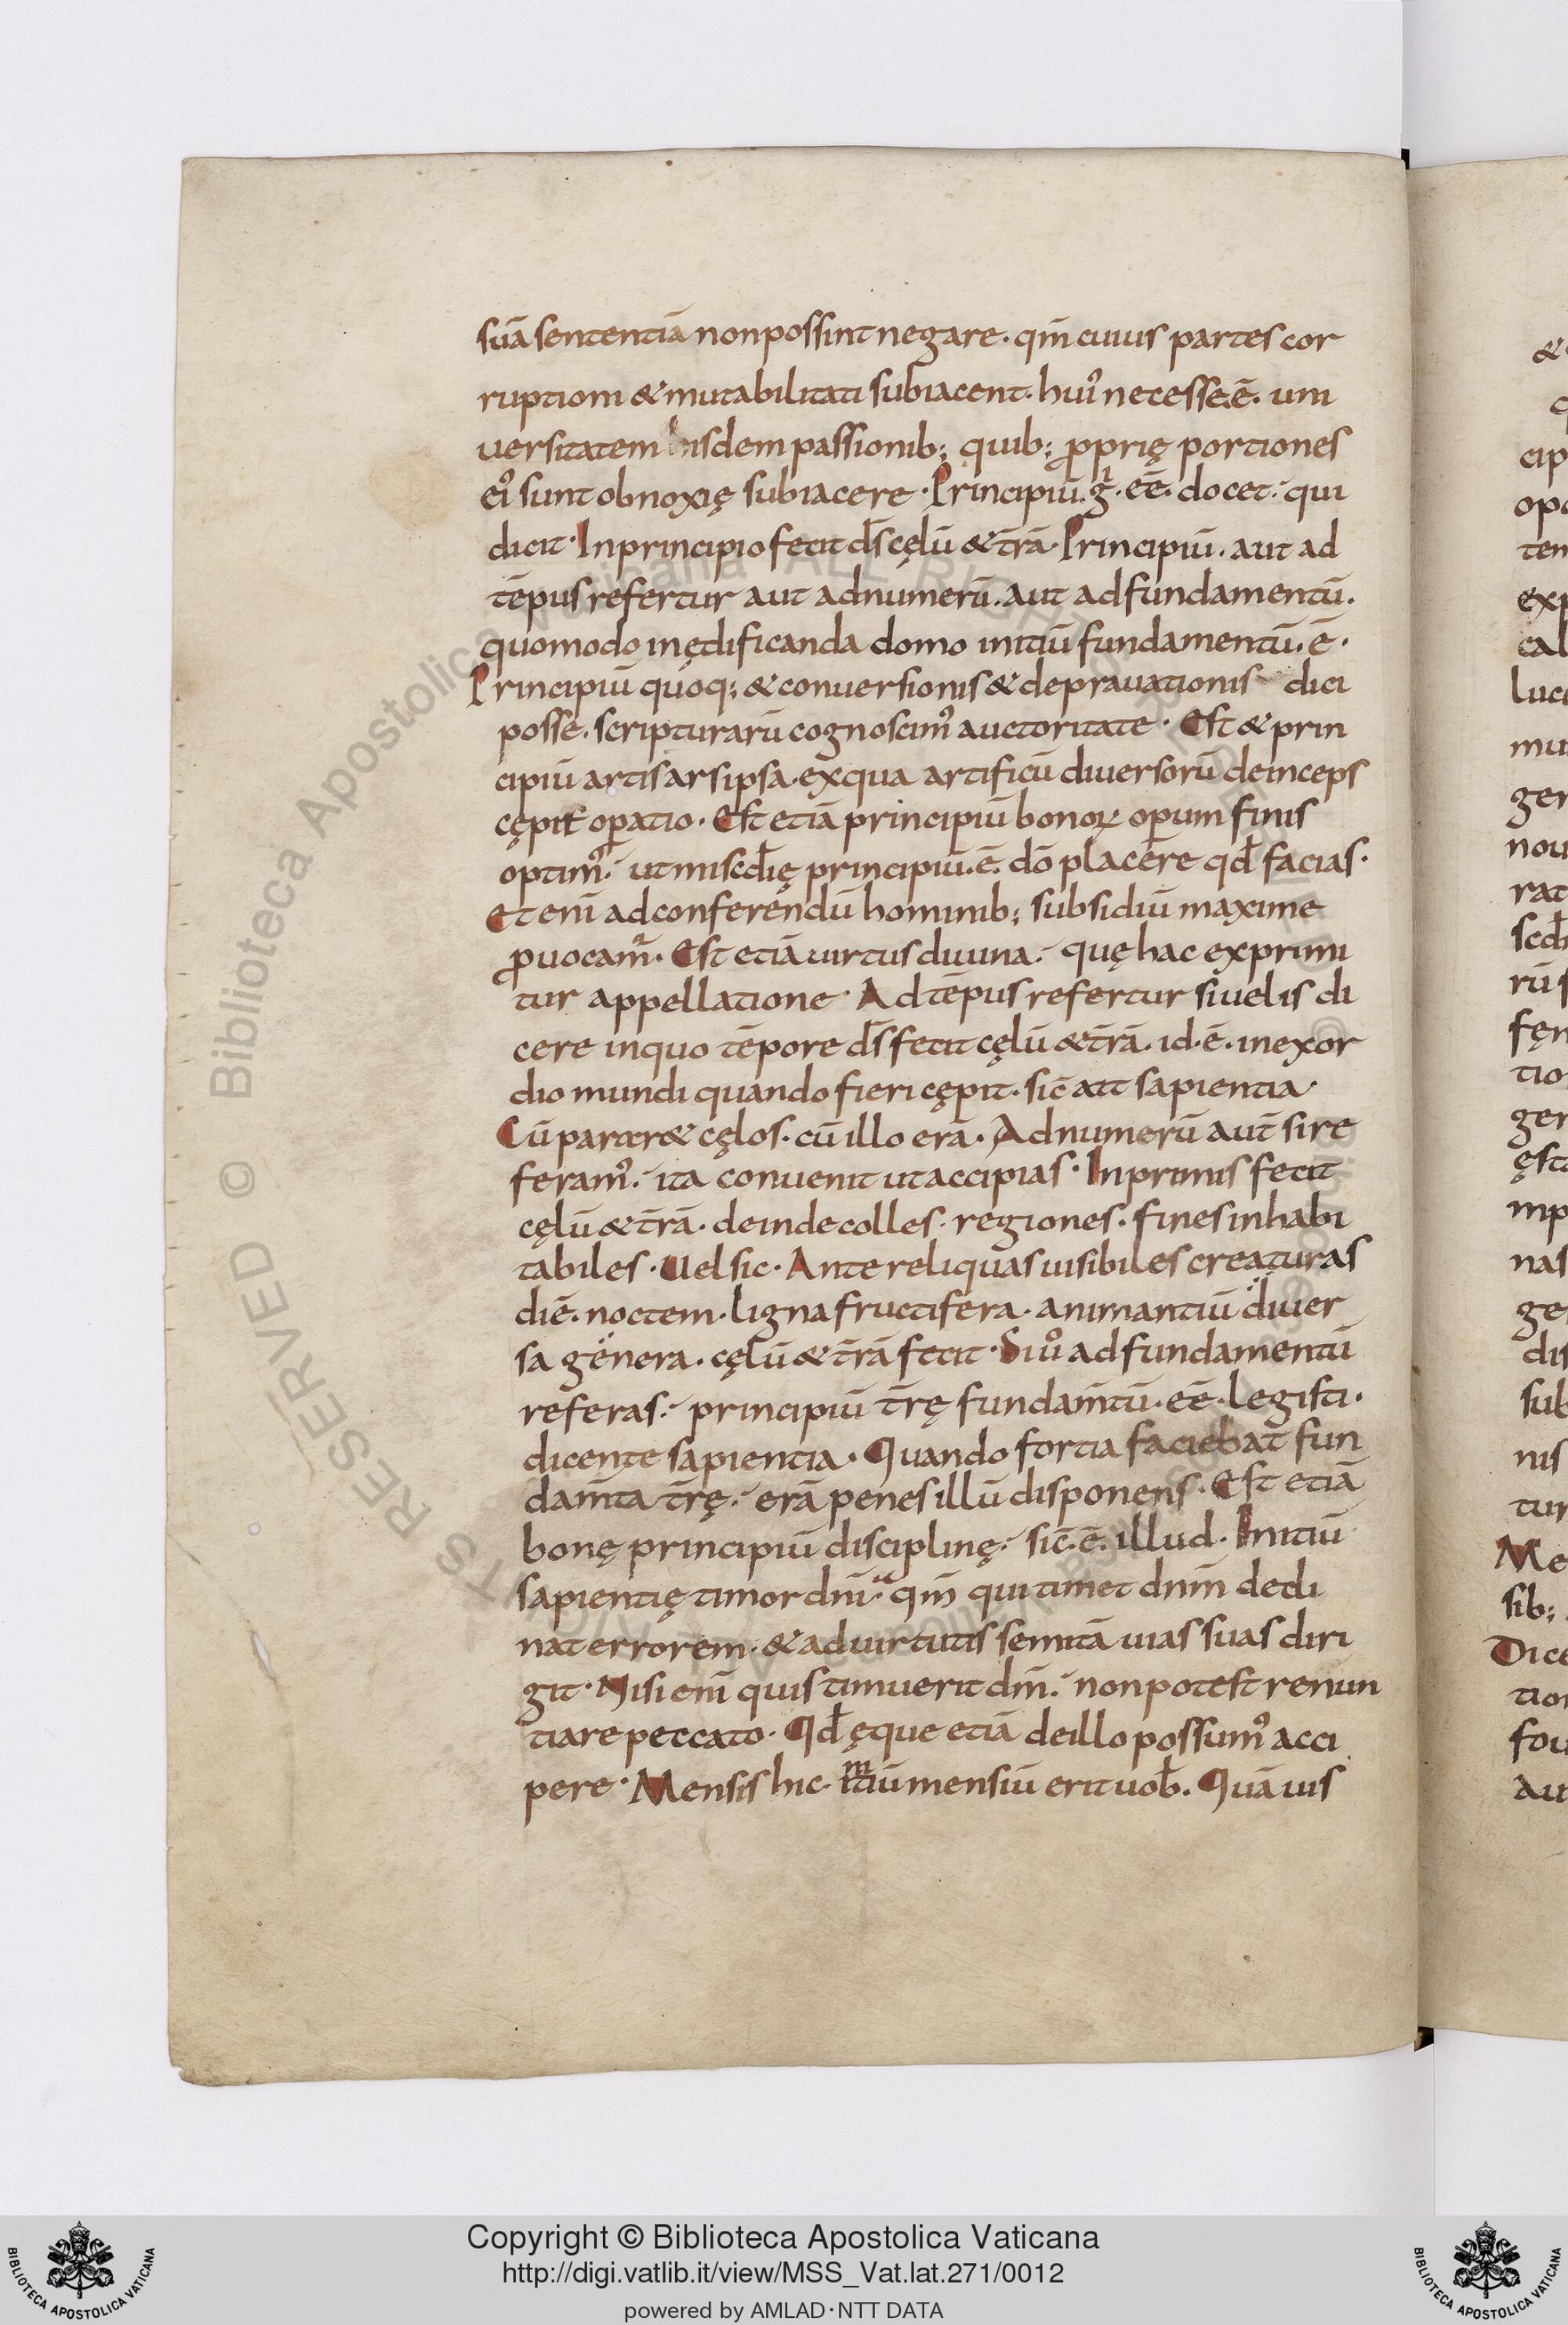 suā sententiā non possint negare. qm̄ cuius partes cor
ruptioni & mutabilitati subiacent. huiꝰ necesse.ē. uni
uersitatem hisdem passionib; quib; ꝓprię portiones
eiꝰ sunt obnoxię subiacere. Principiū. gͥ. eē. docet. qui
dicit. In principio fecit ds̄ cęlū & t̄rā. Principiū. aut ad
tēpus refertur aut ad numerū. aut ad fundamentū.
quomodo in ędificanda domo initiū fundamentū. ē.
Principiū quoq; & conuersionis & deprauationis dici
posse. scripturarū cognoscimꝰ auctoritate. Est & prin
cipiū artis ars ipsa. ex qua artificū diuersorū deinceps
cępit oꝑatio. Est etiā principiū bonoꝝ oꝑum finis
optimꝰ. ut miscd̄ię principiū. ē. dō placere qd̄ facias.
Et eni ̄ ad conferendū hominib; subsidiū maxime
ꝓuocam̄. Est etiā uirtus diuina. quę hac exprimi
tur appellatione. Ad tēpus refertur si uelis di
cere in quo tēpore ds̄ fecit cęlū & t̄rā. id. ē. in exor
dio mundi quando fieri cępit. sic̄ ait sapientia.
Cū parar& cęlos. cū illo erā. Ad numerū aut̄ si re
feramꝰ. ita conuenit ut accipias. Inprimis fecit
cęlū & t̄rā. deinde colles. regiones. fines inhabi
tabiles. Uel sic. Ante reliquas uisibiles creaturas
diē. noctem. ligna fructifera. animantiū diuer
sa genera. cęlū & t̄rā fecit. Siuͦ ad fundamentū
referas. principiū t̄rę fundam̄tū. eē. legisti.
dicente sapientia. Quando fortia faciebat fun
dam̄ta t̄rę. erā penes illū disponens. Est etiā
bonę principiū disciplinę. sic̄. ē. illud. Initiū
sapientię timor dn̄i. qm̄ qui timet dn̄m decli
nat errorem. & ad uirtutis semitā uias suas diri
git. Nisi eni ̄ quis timuerit dm̄. non potest renun
tiare peccato. Qd̄ ęque etiā de illo possumꝰ acci
pere. Mensis hic initiū mensiū erit uob̄. Quā uis
&
cip
opo
tem
exp
cal
luce
mu
gen
nou
rat
scd̄
rū s
fęn
tio
gen
ęsta
imp
nas
gen
dis
sub
nis
tur
Me
sib;
Dice
tion
fou
Au
© Biblioteca Apostolica Vaticana ALL RIGHTS RESERVED
Copyright © Biblioteca Apostolica Vaticana
http://digi.vatlib.it/view/MSS_Vat.lat.271/0012
powered by AMLAD·NTT DATA
BIBLIOTECA APOSTOLICA VATICANA
BIBLIOTECA APOSTOLICA VATICANA